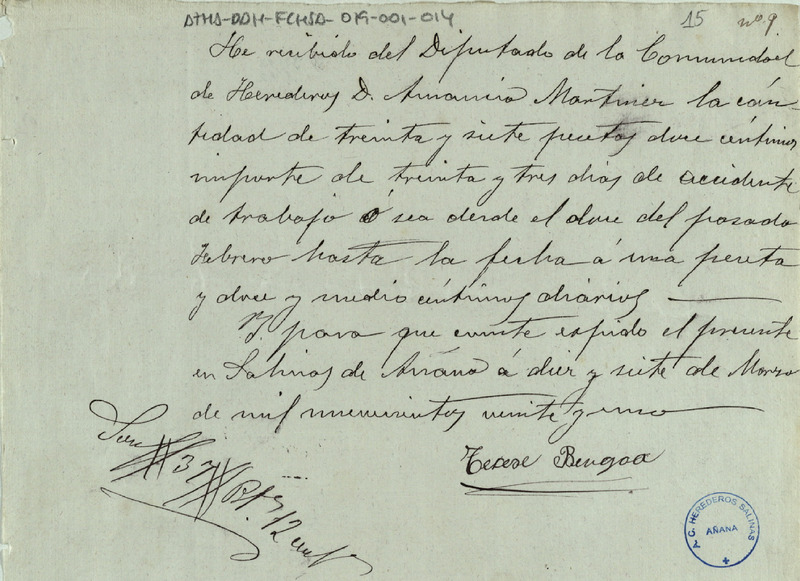 ATHA-DAH-FCHSA-019-001-014
15 nº 9
He recibido del Diputado de la Comunidad
de Herederos D. Amancio Martinez la cán-
tidad de treinta y siete pesetas doce céntimos
importe de treinta y tres dias de accidente
de trabajo ó sea desde el doce del pasado
Febrero hasta la fecha á una peseta
y doce y medio céntimos diarios
Y para que conste espido el presente
en Salinas de Añana á diez y siete de Marzo
de mil novecientos veinte y uno
Son # 37 # Pts 12 cents
Terese Bengoa
C. HEREDEROS SALINAS
AÑANA